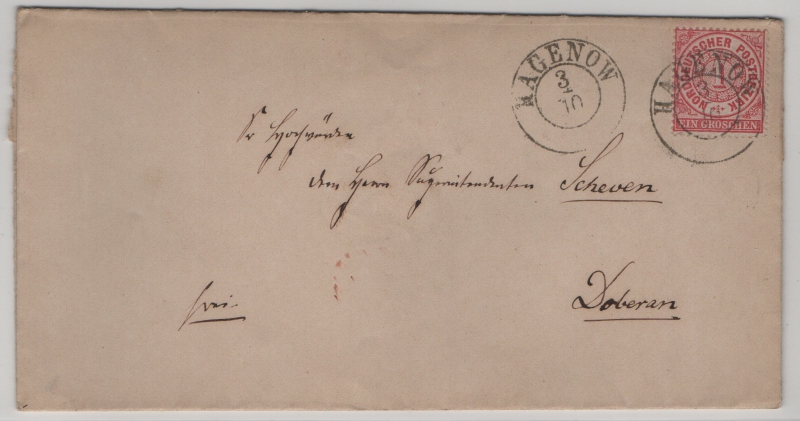 HAGENOW
3/10
HAGENOW
3/10
NORDDEUTSCHER POSTBEZIRK
EIN GROSCHEN
Sr Hochwürden
dem Herrn Superintendenten Scheven
Doberan
frei